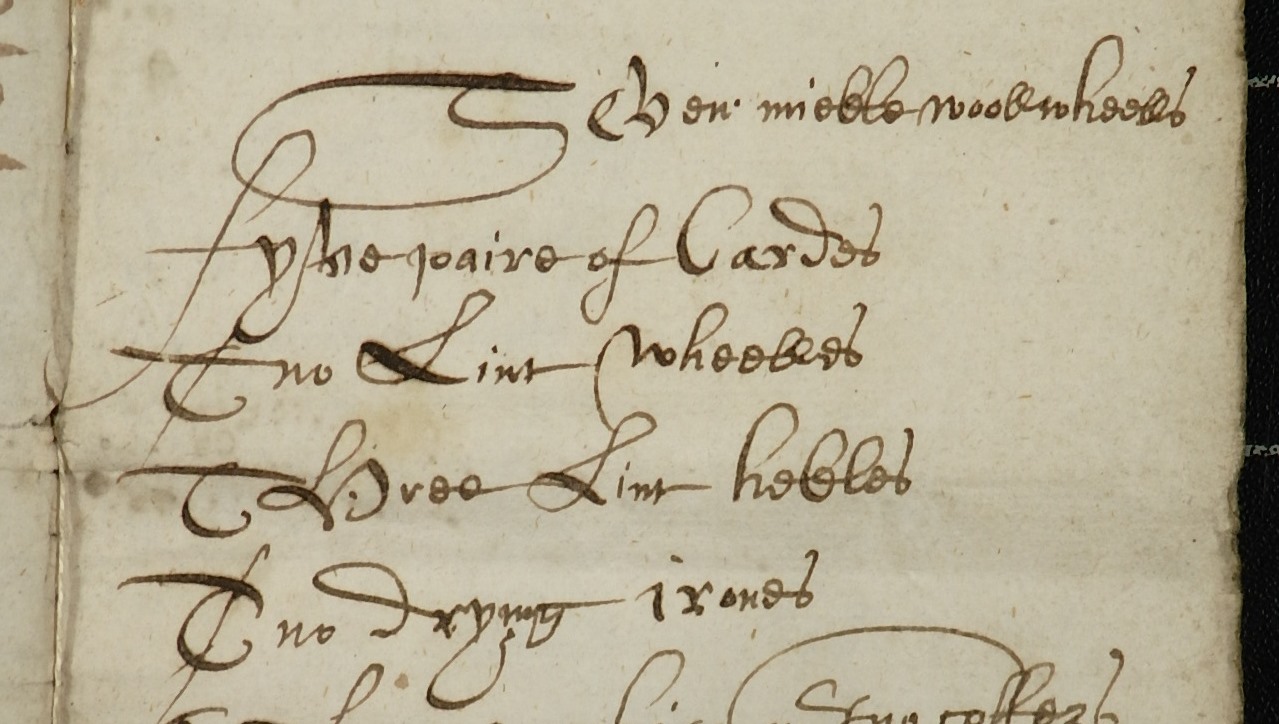 Seven mickle wooll wheells
ffyve paire of Cardes
Tuo Lint wheelles
Three Lint heckles
Tuo drying irones